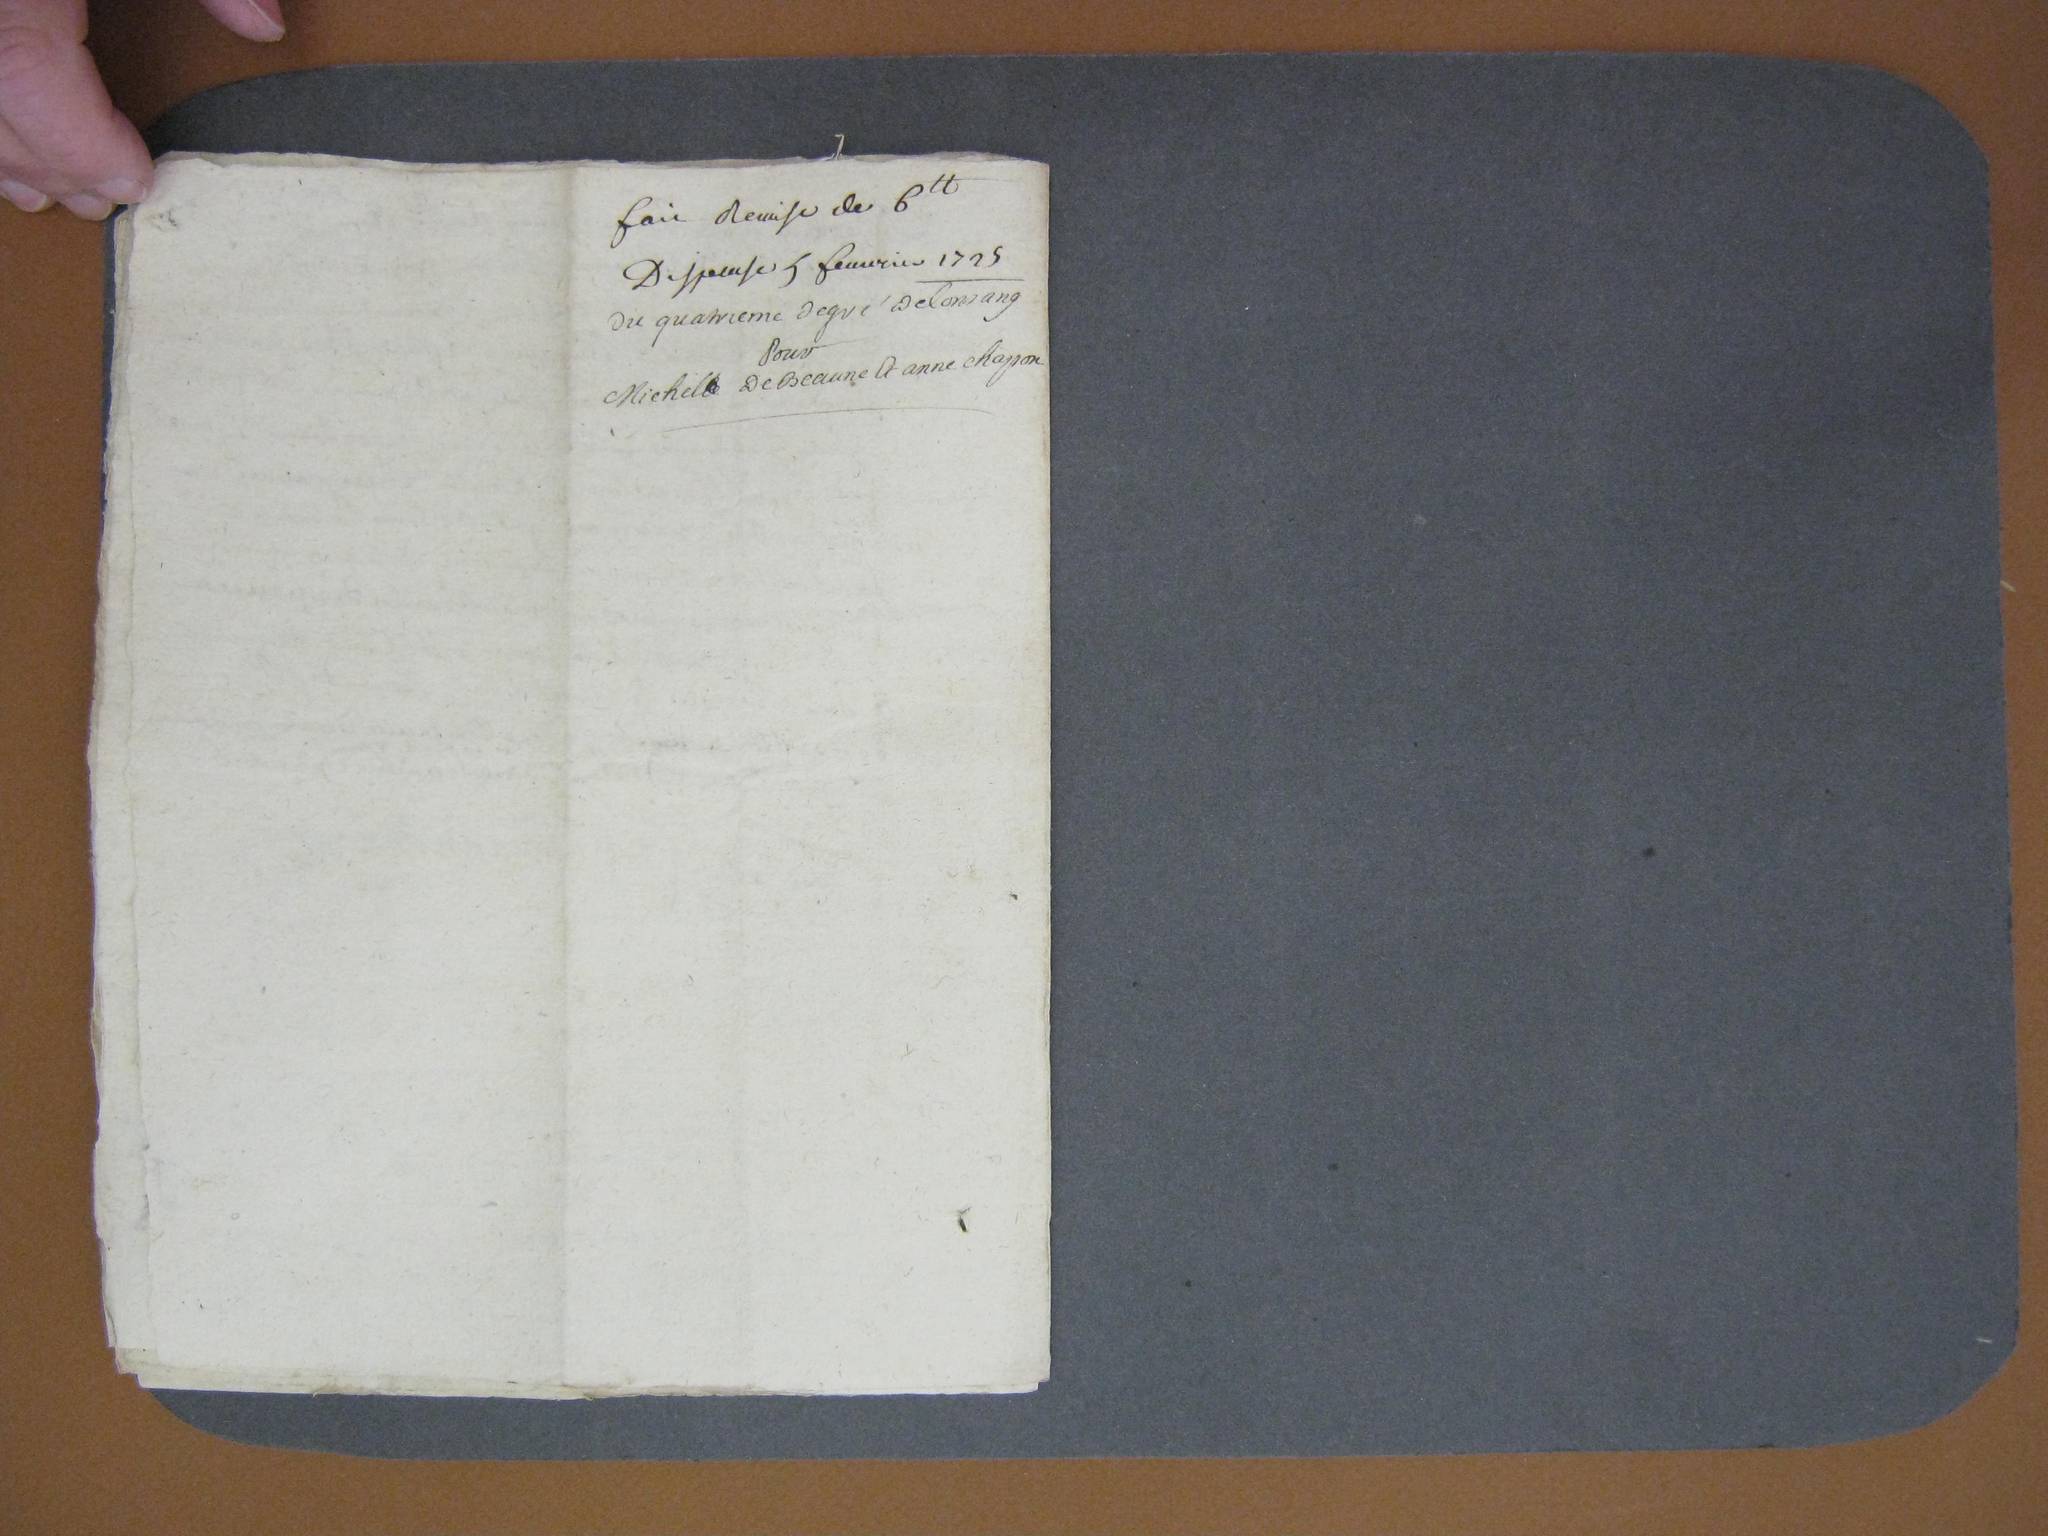 fait Remise de 6tt
Dispense 5 feuurier 1725
du quatrieme degré de Consang
Pour
Michelle DeBeaune et anne Chappon